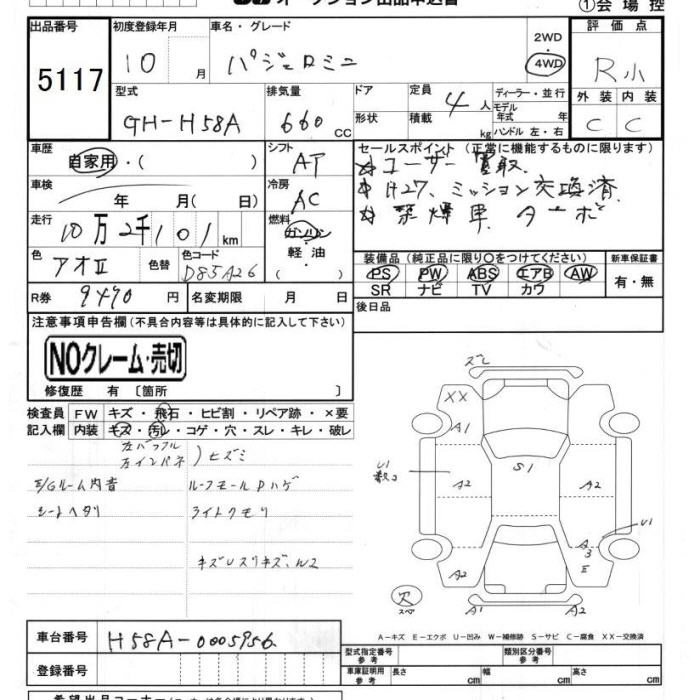 オークション出品申込書
①会場控
出品番号 初度登録年月 車名・グレード 評価点
5117 10月 パジェロミニ 2WD 4WD R小
型式 排気量 ドア 定員 ディーラー・並行 外装 内装
GH-H58A 660 CC 形状 積載 4人 kg モデル年式 年 ハンドル 左・右 C C
車歴 シフト セールスポイント(正常に機能するものに限ります)
自家用・( ) AT ☆ユーザー買取
車検 年 月( 日) 冷房 AC ☆H27、ミッション交換済
☆禁煙車 ターボ
走行 10万2千101km 燃料 ガソリン 軽油
装備品(純正品に限り○をつけてください) 新車保証書
色 アオⅡ 色替 色コード D85A26 PS PW ABS エアB AW 有・無
SR ナビ TV カワ
R券 9490円 名変期限 月 日 後日品
注意事項申告欄(不具合内容等は具体的に記入して下さい)
NOクレーム・売切
修復歴 有〔箇所 〕
検査員 FW キズ・飛石・ヒビ割・リペア跡・×要
記入欄 内装 キズ・汚レ・コゲ・穴・スレ・キレ・破レ
左インパネ )ヒズミ
E/Gルーム内音 ルーフモールPハゲ
シートヘタリ ライトクモリ
ズレ
XX
A1
U1
S1
A2 A2
U1
A3
E
A2
欠
スペア
A1 A2
A-キズ E-エクボ U-凹み W-補修跡 S-サビ C-腐食 XX-交換済
車台番号 H58A-0005956
登録番号
型式指定番号 参考 類別区分番号 参考
車庫証明用 参考 長さ cm 幅 cm 高さ cm